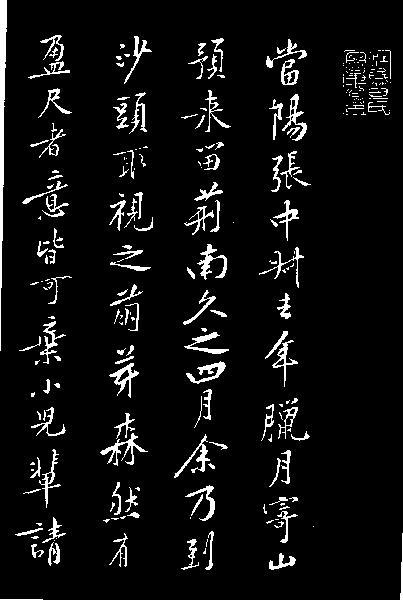 當陽張中叔去年臘月寄山
預来留荊南久之四月余乃到
沙頭取視之萌芽森然有
盈尺者意皆可棄小児輩請